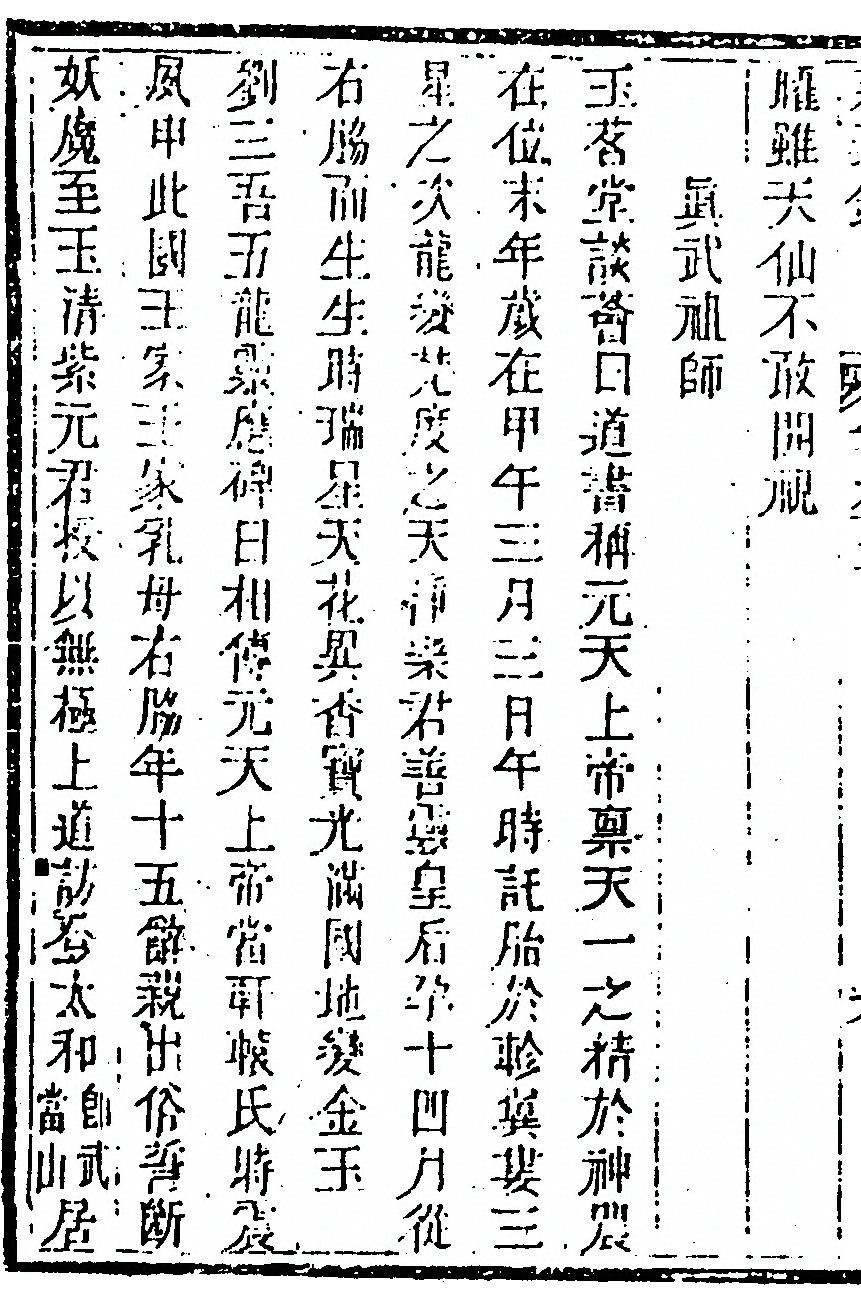 雖天仙不敢開視
真武祖師
玉茗堂談薈曰道書稱元天上帝禀天一之精於神農
在位末年歲在甲午三月三日午時託胎於軫翼婁三
星之次龍變梵度之天淨樂君善勝皇后孕十四月從
右脇而生生時瑞星天花異香寶光滿國地變金玉
劉三吾五龍靈應碑曰相傳元天上帝當軒轅氏時震
夙甲此國王家王家乳母右脇年十五辭親出俗誓斷
妖魔至玉清紫元君授以無極上道訪太和即武當山居